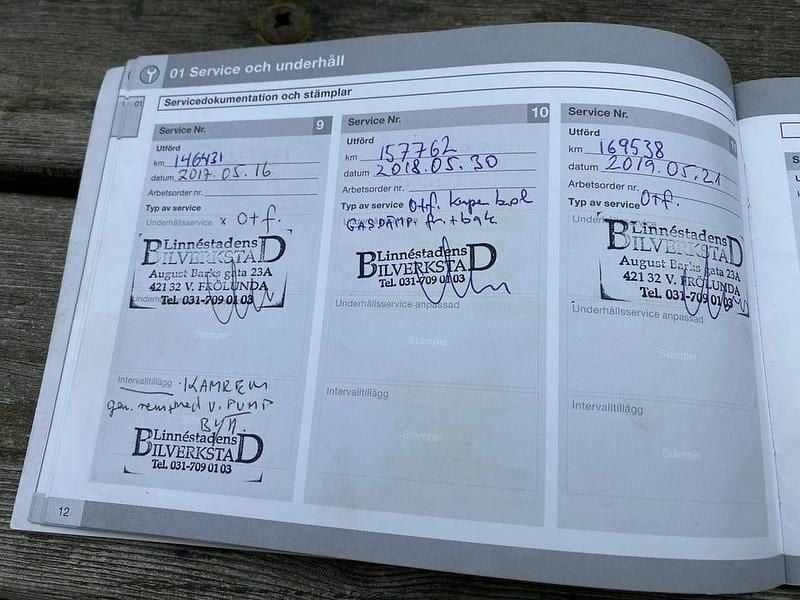 01 Service och underhåll
01
Servicedokumentation och stämplar
Service Nr. 9
Utförd
km 146431
datum 2017.05.16
Arbetsorder nr.
Typ av service
Underhållsservice x O+f.
Linnéstadens
BILVERKSTAD
August Barks gata 23A
421 32 V. FRÖLUNDA
Tel. 031-709 01 03
Stämpel
Intervalltillägg · KAMREM
gen. rem+med V. PUMP
BYTT.
Linnéstadens
BILVERKSTAD
Tel. 031-709 01 03
Service Nr. 10
Utförd
km 157762
datum 2018.05.30
Arbetsorder nr.
Typ av service O+f. kupe bol
GASDÄMP. fr. + bak
Linnéstadens
BILVERKSTAD
Tel. 031-709 01 03
Underhållsservice anpassad
Stämpel
Intervalltillägg
Stämpel
Service Nr. 11
Utförd
km 169538
datum 2019.05.21
Arbetsorder nr.
Typ av service O+f.
Linnéstadens
BILVERKSTAD
August Barks gata 23A
421 32 V. FRÖLUNDA
Tel. 031-709 01 03
Underhållsservice anpassad
Stämpel
Intervalltillägg
Stämpel
12